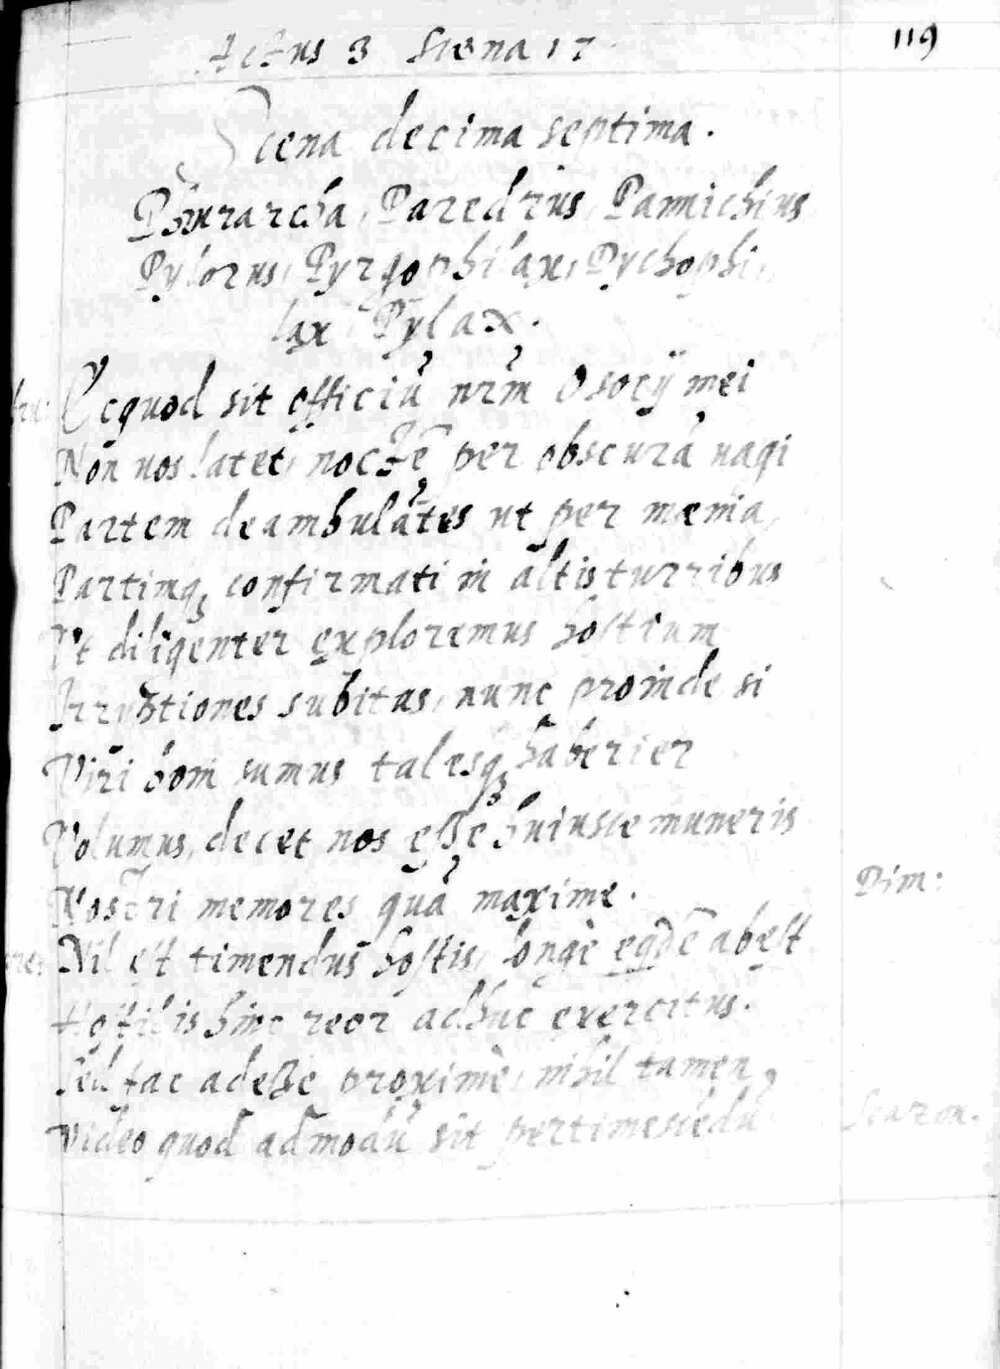 Actus 3 Scena 17.
119
Scena decima septima.
Phrurarcha, Paredrus, Pannichius
Pylorus, Pyrgophilax, Pychophi
lax Pylax.
Ecquod sit officiũ nr̃m O socij mei
Non vos latet, noctẽ per obscurã vagi
Partem deambulãtes ut per mænia,
Partimq; confirmati in altis turribus
Vt diligenter exploremus hostium
Irruptiones subitas, nunc proinde si
Viri boni sumus talesq; haberier
Volumus, decet nos esse huiusce muneris
Nostri memores quã maxime.
Dim:
Nil est timendus hostis, longè eqdẽ abest
Hostilis hinc reor adhuc exercitus.
Sed fac adesse proximè, nihil tamen
Video quod admodũ sit pertimescẽdũ